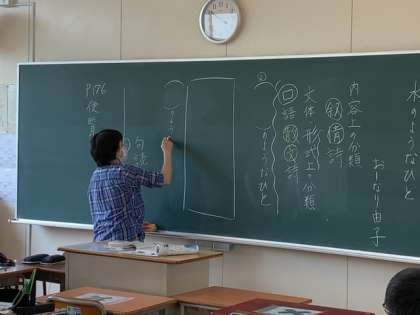 水のようなひと
おーなり由子
内容上の分類
叙情詩
文体・形式上の分類
口語自由詩
のようなひと
のような
P176
便覧